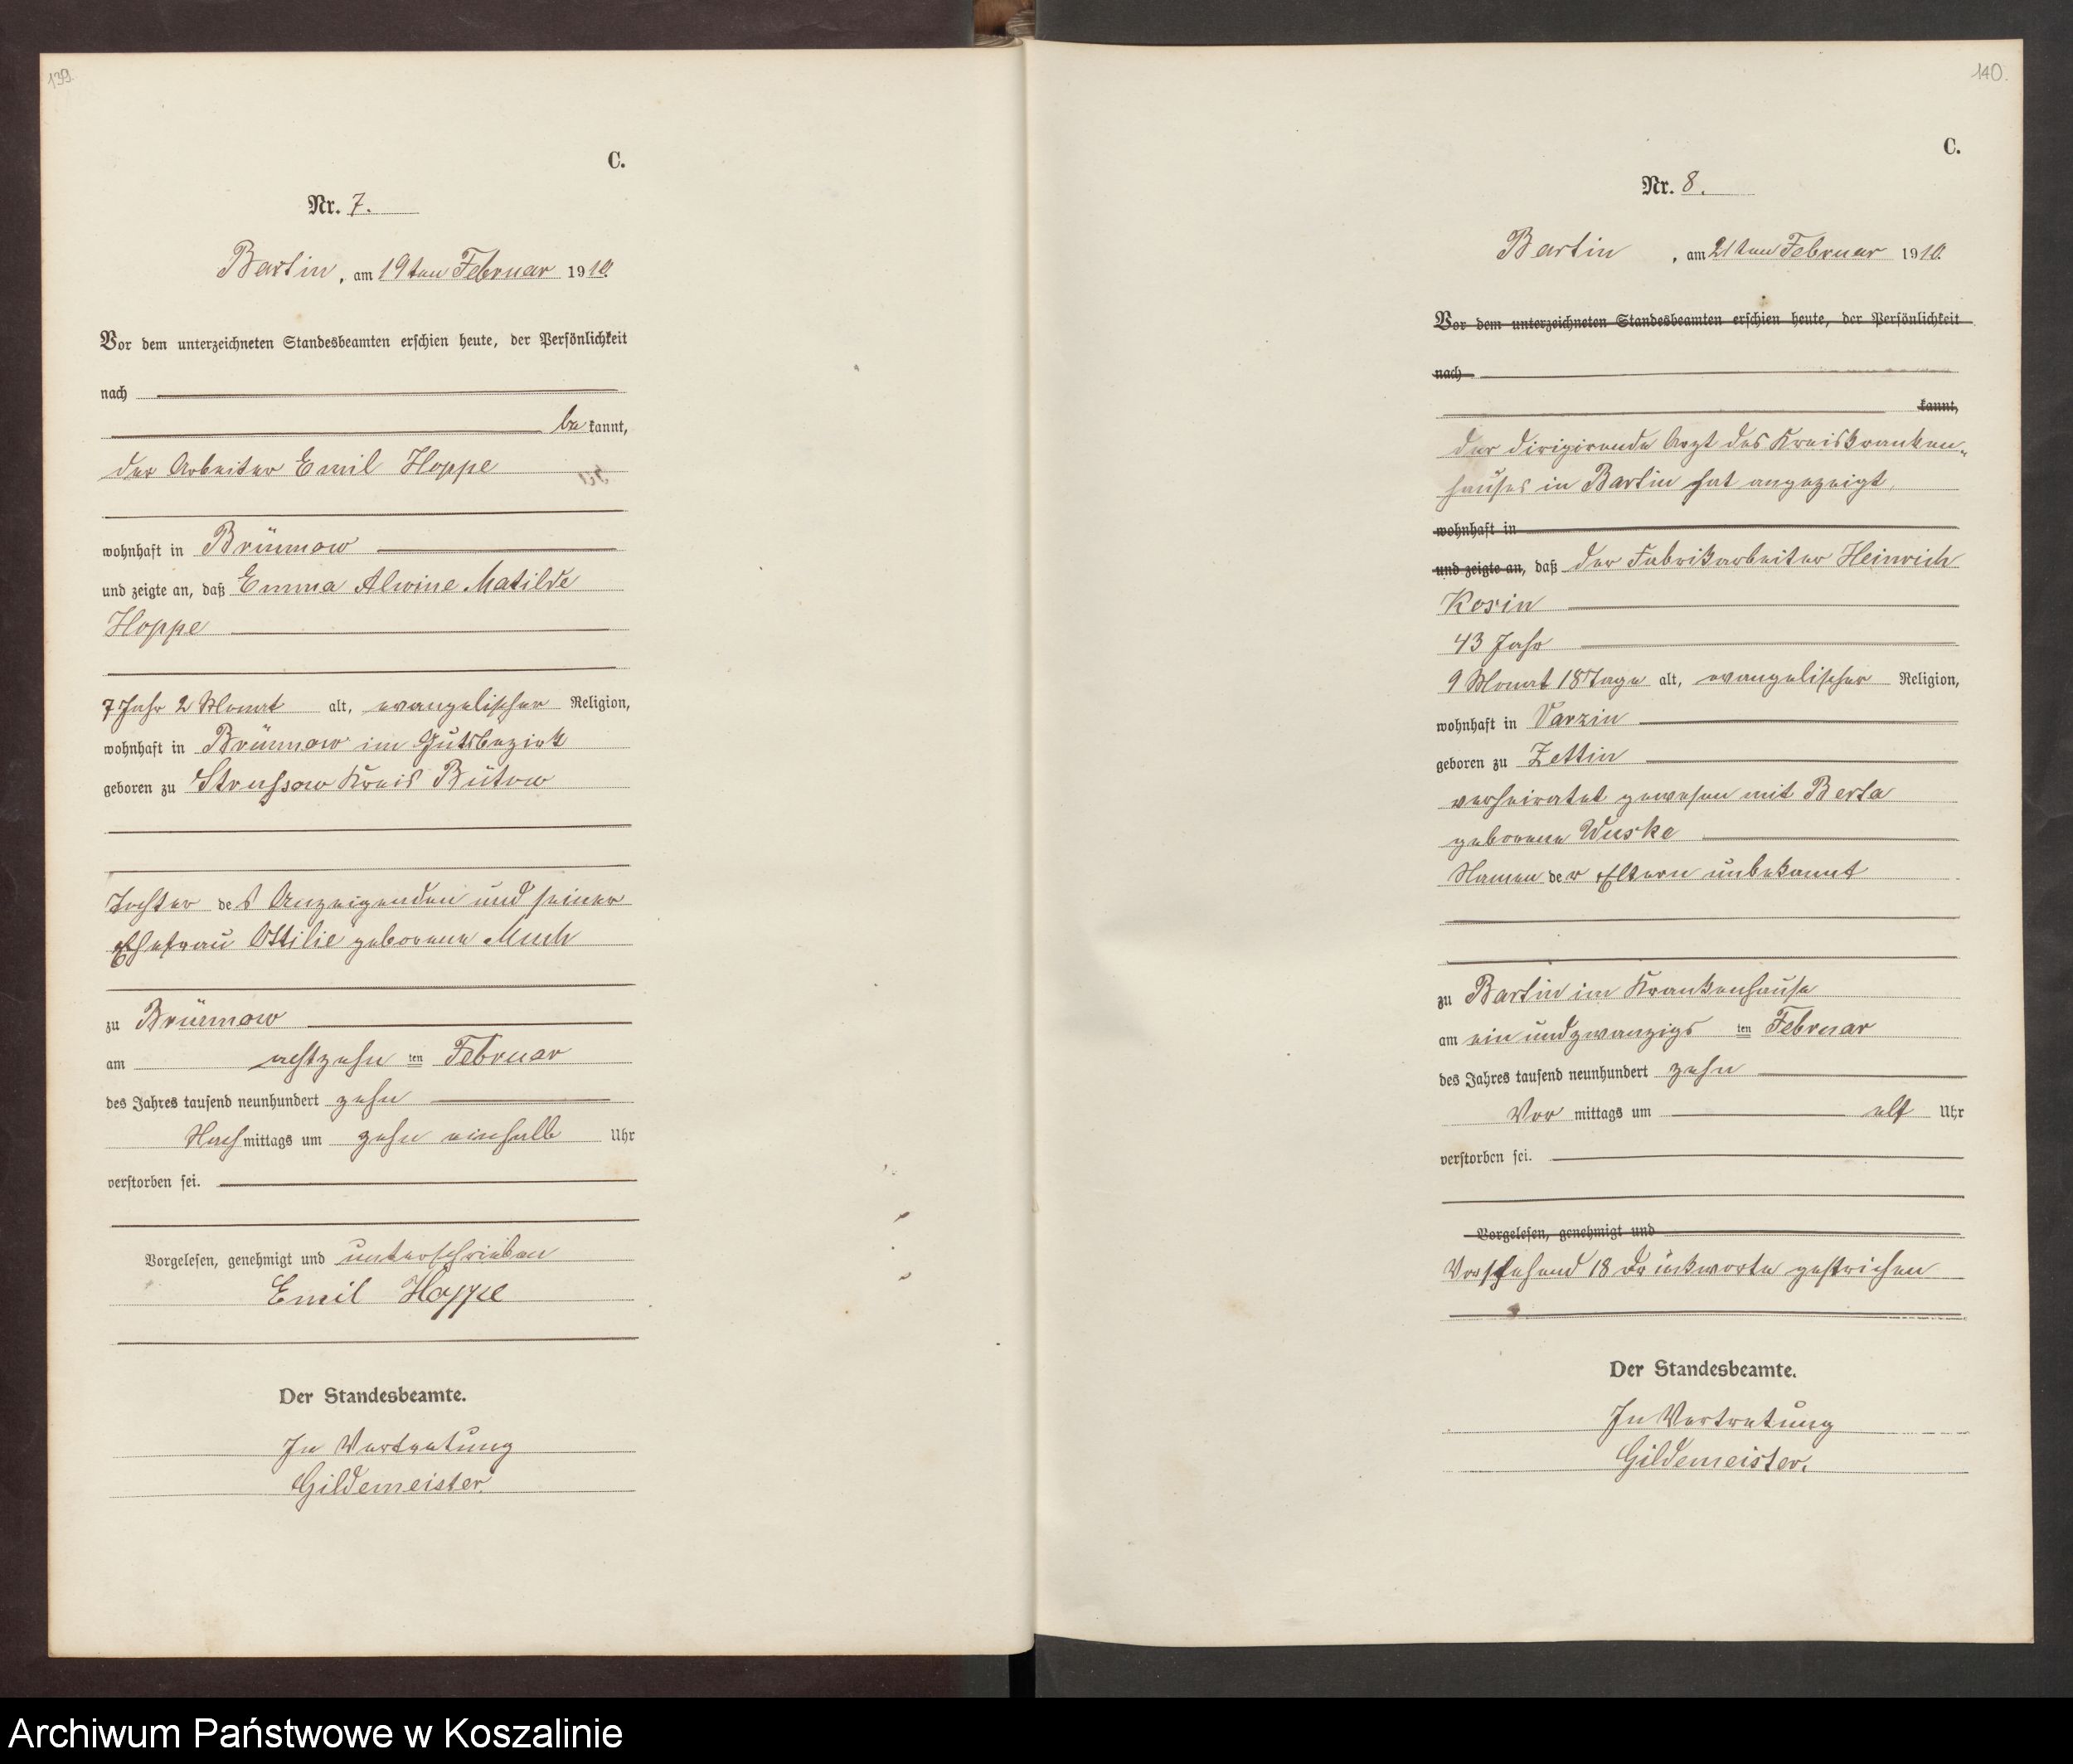 139.
C.
Nr. 7.
Bartin, am 19ten Februar 1910.
Vor dem unterzeichneten Standesbeamten erschien heute, der Persönlichkeit
nach
be kannt,
der Arbeiter Emil Hoppe
wohnhaft in Brünnow
und zeigte an, daß Emma Alwine Matilde
Hoppe
7 Jahr 2 Monat alt, evangelischer Religion,
wohnhaft in Brünnow im Gutsbezirk
geboren zu Strussow Kreis Bütow
Tochter des Anzeigenden und seiner
Ehefrau Ottilie geborene Much
zu Brünnow
am achtzehn ten Februar
des Jahres tausend neunhundert zehn
Nachmittags um zehn einhalb Uhr
verstorben sei.
Vorgelesen, genehmigt und unterschrieben
Emil Hoppe
Der Standesbeamte.
In Vertretung
Gildemeister.
140.
C.
Nr. 8.
Bartin, am 21ten Februar 1910.
Vor dem unterzeichneten Standesbeamten erschien heute, der Persönlichkeit
nach
kannt,
der dirigirende Arzt des Kreiskranken-
hauses in Bartin hat angezeigt,
wohnhaft in
und zeigte an, daß der Fabrikarbeiter Heinrich
Kosin
43 Jahr
9 Monat 18 Tage alt, evangelischer Religion,
wohnhaft in Varzin
geboren zu Zettin
verheiratet gewesen mit Berta
geborene Wuske
Namen der Eltern unbekannt
zu Bartin im Krankenhause
am ein und zwanzigs ten Februar
des Jahres tausend neunhundert zehn
Vor mittags um elf Uhr
verstorben sei.
Vorgelesen, genehmigt und
Vorstehend 18 Druckworte gestrichen
Der Standesbeamte.
In Vertretung
Gildemeister.
Archiwum Państwowe w Koszalinie